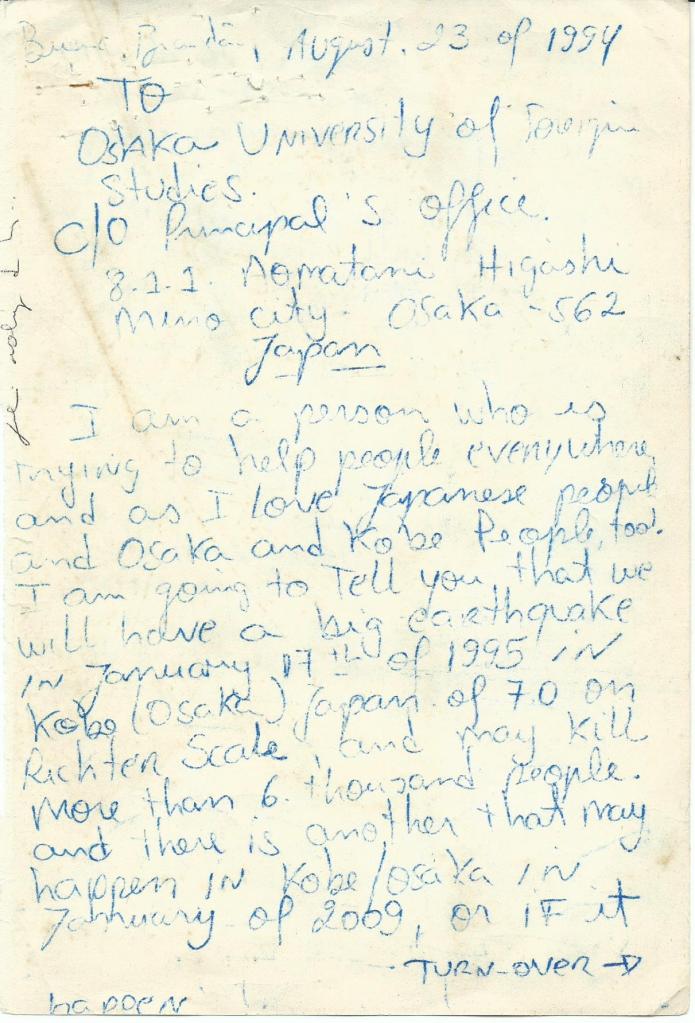 August. 23 of 1994
TO
Osaka University of Foreign
Studies.
C/O Principal's office.
8.1.1. Aomatani Higashi
Mino city. Osaka - 562
Japan
I am a person who is
trying to help people everywhere
and as I love Japanese people
and Osaka and Kobe People, too.
I am going to Tell you that we
will have a big earthquake
in January 17th of 1995 in
Kobe (Osaka) Japan of 7.0 on
Richter Scale, and may kill
more than 6 thousand people.
and there is another that may
happen in Kobe/Osaka in
January of 2009, or if it
TURN-OVER →
happen